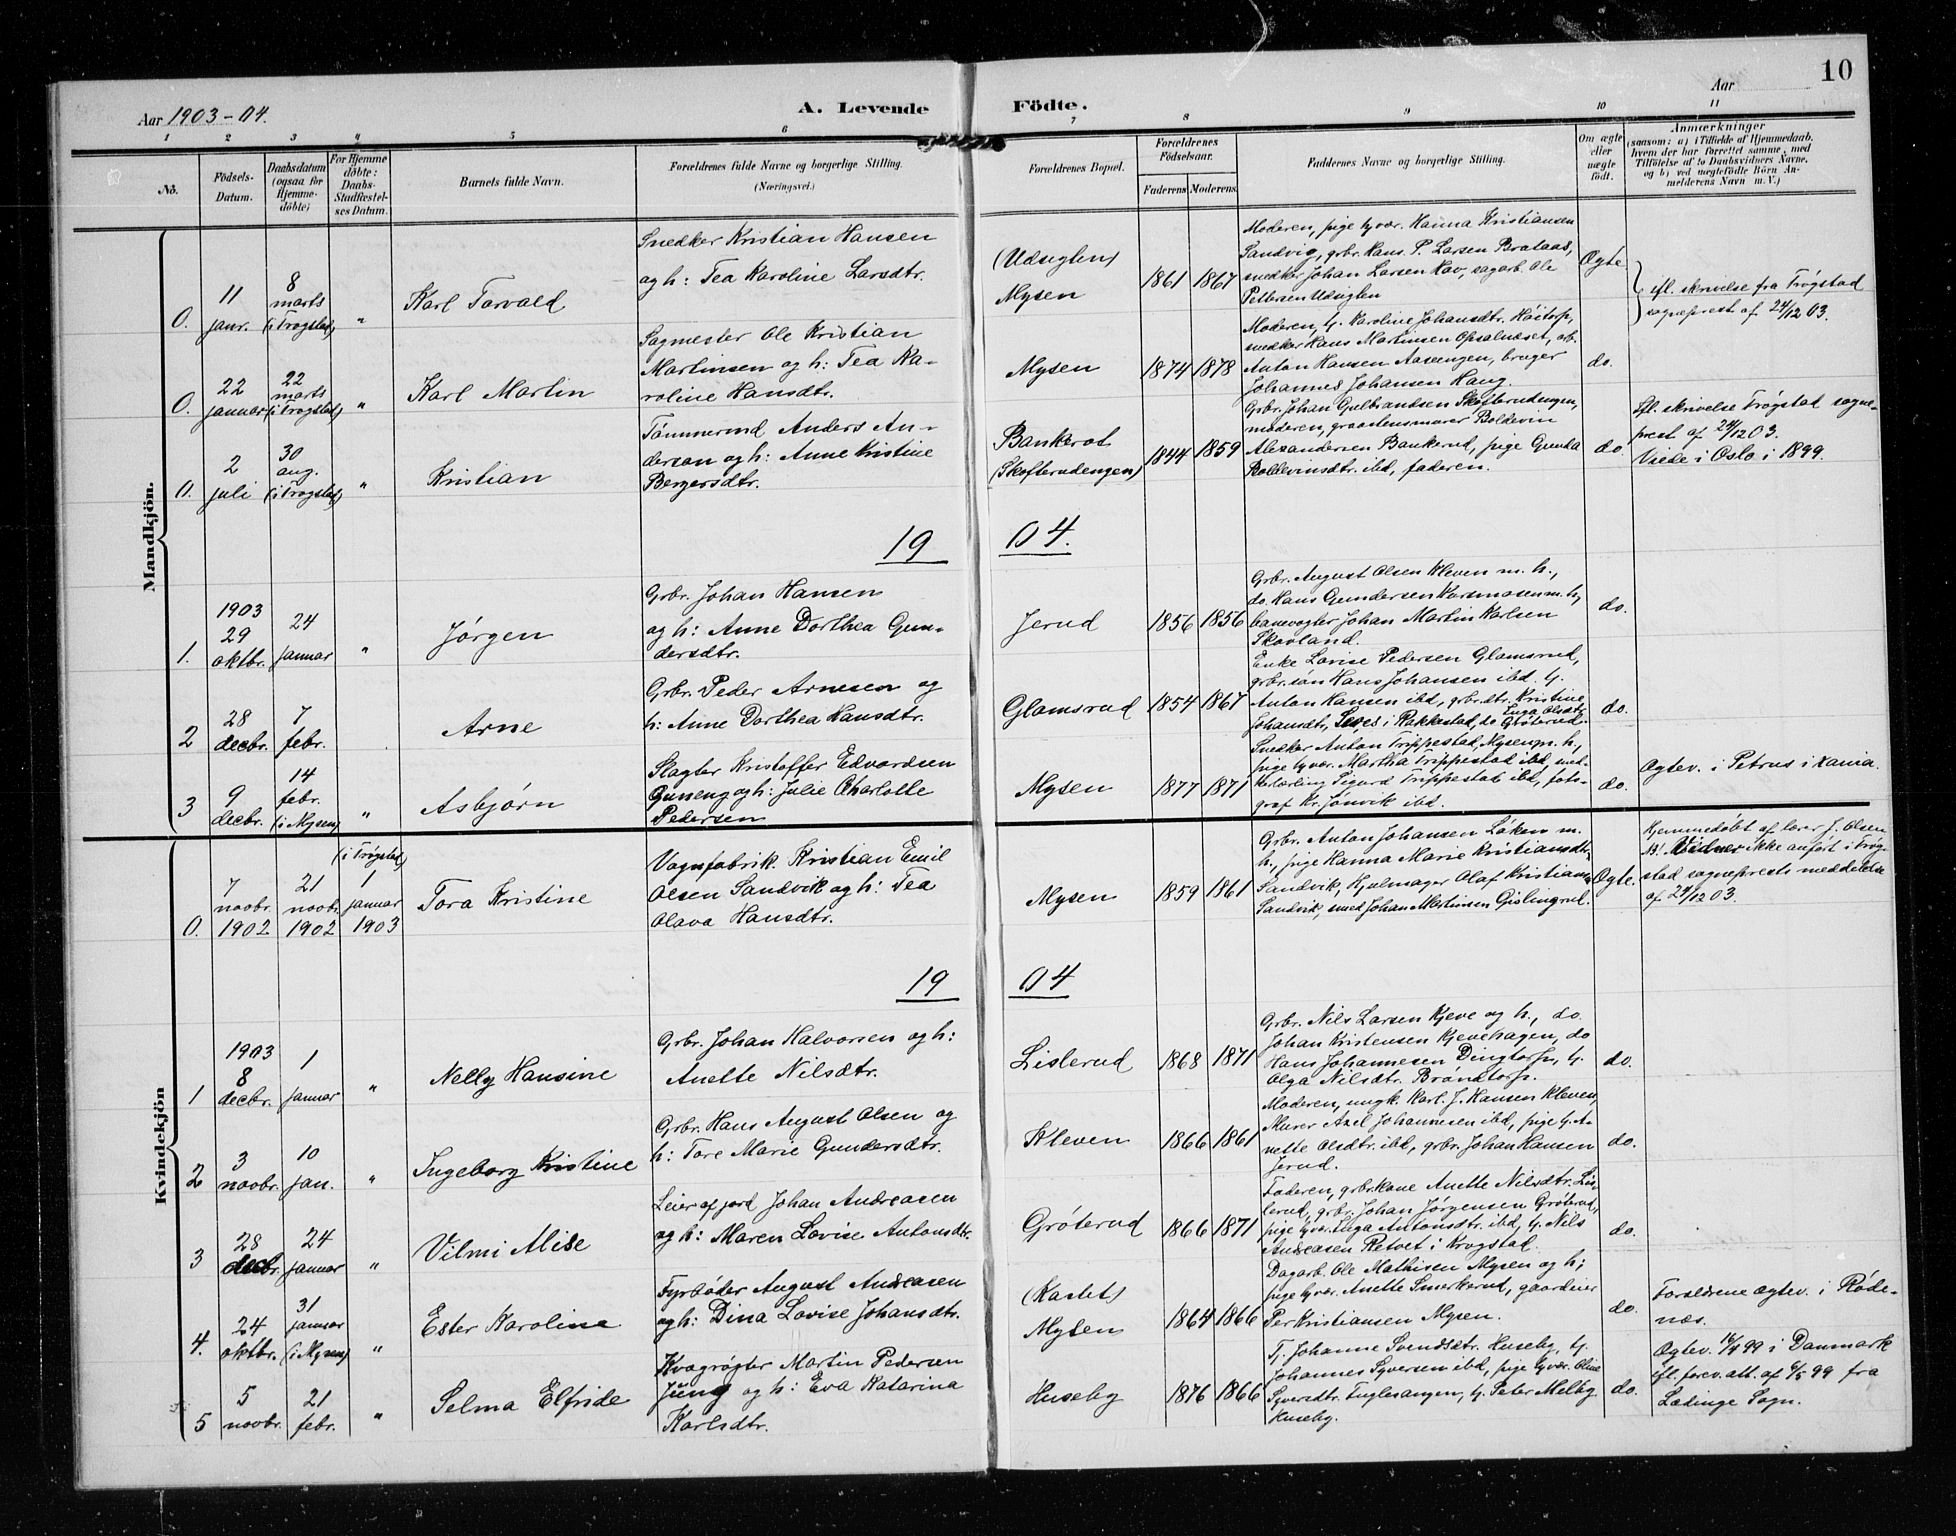 10
Aar 1903-04.
A. Levende Födte.
Aar
1 2 3 4 5 6 7 8 9 10 11
No.
Födsels-
Datum.
Daabsdatum
(ogsaa for
Hjemme-
döbte)
For Hjemme
döbte:
Daabs-
Stadfæstel-
ses Datum.
Barnets fulde Navn.
Forældrenes fulde Navne og borgerlige Stilling.
(Næringsvei.)
Forældrenes Bopæl.
Forældrenes
Födselsaar.
Faderens. Moderens.
Faddernes Navne og borgerlige Stilling.
Om ægte
eller
uægte
födt.
Anmærkninger
(saasom: a) i Tilfælde af Hjemmedaab.
hvem der har forrettet samme, med
Tilföielse af to Daabsvidners Navne,
og b) ved uægtefödte Börn An-
melderens Navn m. V.)
Mandkjön.
0.
11
janr.
8
marts
(i Trøgstad)
"
Karl Torvald
Snedker Kristian Hansen
og h: Tea Karoline Larsdtr.
(Udsigten)
Mysen
1861
1867
Moderen, pige Hanna Kristiansen
Sandvig, grbr. Hans P. Larsen Brataas,
snedker Johan Larsen Kav, sagarb. Ole
Pettersen Udsigten
Ægte
ifl. skrivelse fra Trøgstad
sogneprest af 24/12 03.
0.
22
januar
22
marts
(i Trøgstad)
"
Karl Martin
Sagmester Ole Kristian
Martinsen og h: Tea Ka-
roline Hansdtr.
Mysen
1874
1878
Moderen, Karoline Johansdtr. Høitorp,
snedker Hans Martinsen Opsalnæset, arb.
Anton Hansen Aasengen, bruger
Johannes Johansen Haug.
do.
0.
2
juli
30
aug.
(i Trøgstad)
"
Kristian
Tømmermd Anders An-
dersen og h: Anne Kristine
Bergersdtr.
Bankerot
(Skofterudengen)
1844
1859
Grbr. Johan Gulbrandsen Skofterudengen,
moderen, graastensmurer Boldevin
Alexandersen Bankerud, pige Gunda
Boldevinsdtr. ibd, faderen.
do.
Ifl. skrivelse Trøgstad sogne-
prest af 24/12 03.
Viede i Oslo i 1899.
19 04.
1.
1903
29
oktbr.
24
januar
"
Jørgen
Grbr. Johan Hansen
og h: Anne Dorthea Gun-
dersdtr.
Jerud
1856
1856
Grbr. August Olsen Kleven m. h.,
do. Hans Gundersen Korsmosen m. h,
banevogter Johan Martin Karlsen
Skovland.
do.
2
28
decbr.
7
febr.
Arne
Grbr. Peder Arnesen og
h: Anne Dorthea Hansdtr.
Glamsrud
1854
1867
Enke Lovise Pedersen Glamsrud,
grbr. søn Hans Johansen ibd.
Anton Hansen ibd, grbr.dtr. Kristine
Johansdtr. i Rakkestad, do Inga Olsdtr.
Grøterud.
do.
3
9
decbr.
14
febr.
(i Mysen)
"
Asbjørn
Slagter Kristoffer Edvardsen
Guneng og h: Julie Charlotte
Pedersen
Mysen
1877
1871
Snedker Anton Trippestad, Mysen m. h,
pige Martha Trippestad ibd, sned-
kerlærling Sigurd Trippestad ibd, foto-
graf Kr. Jonvik ibd.
do.
Ægtev. i Petrus i Xania.
Kvindekjön
0.
7
novbr.
1902
21
novbr.
1902
(i Trøgstad)
1
januar
1903
Tora Kristine
Vognfabrik. Kristian Emil
Olsen Sandvik og h: Tea
Olava Hansdtr.
Mysen
1859
1861
Grbr. Anton Johansen Løken m.
h., pige Hanna Marie Kristiansdtr.
Sandvik, Hjulmager Olaf Kristians
Sandvik, smed Johan Martinsen Gislingrud.
Ægte.
Hjemmedøbt af lærer J. Olsen
N! Vidner ikke anført i Trøg-
stad sogneprests meddelelse
af 24/12 03.
19 04
1
1903
8
decbr.
1
januar
"
Nelly Hansine
Grbr. Johan Halvorsen og h:
Anette Nilsdtr.
Lislerud
1868
1871
Grbr. Nils Larsen Kjeve og h., do.
Johan Kristensen Kjevehagen, do
Hans Johannesen Dingtorp,
Olga Nilsdtr. Brøndtorp.
do.
2
3
novbr.
10
jan.
"
Ingeborg Kristine
Grbr. Hans August Olsen og
h: Tore Marie Gundersdtr.
Kleven
1866
1861
Moderen, ungk. Karl. J. Hansen Kleven,
Murer Axel Johannesen ibd, pige A-
nette Olsdtr. ibd, grbr. Johan Hansen
Jerud.
do.
3
28
decbr.
24
januar
"
Vilmi Alise
Leier af jord Johan Andreasen
og h: Maren Lovise Antonsdtr.
Grøterud
1866
1871
Faderen, grbr.kone Anette Nilsdtr. Lis-
lerud, grbr. Johan Jørgensen Grøterud,
pige Inga Antonsdtr. ibd, Nils
Andreasen Retvet i Krogstad.
do.
4.
24
oktbr.
31
januar
(i Mysen)
"
Ester Karoline
Fyrbøder August Andreasen
og h: Dina Lovise Johansdtr.
(Kastet)
Mysen
1864
1866
Dagarb. Ole Mathisen Mysen og h;
pige Anette Smerkerud, gaardeier
Per Kristiansen Mysen.
do.
Forældrene ægtev. i Røde-
næs.
5
5
novbr.
21
febr.
"
Selma Elfride
Kvægrøgter Martin Pedersen
Jung og h: Eva Katarina
Karlsdtr.
Huseby
1876
1866
Tj. Johanne Svendsdtr. Huseby,
Johannes Syversen ibd, pige Oline
Syversdtr. Englerangen, Peter Meløg
Huseby.
do.
Ægtev. 14/4 99 i Danmark
ifl. forev. att. af 9/5 99 fra
Lødinge Sogn.